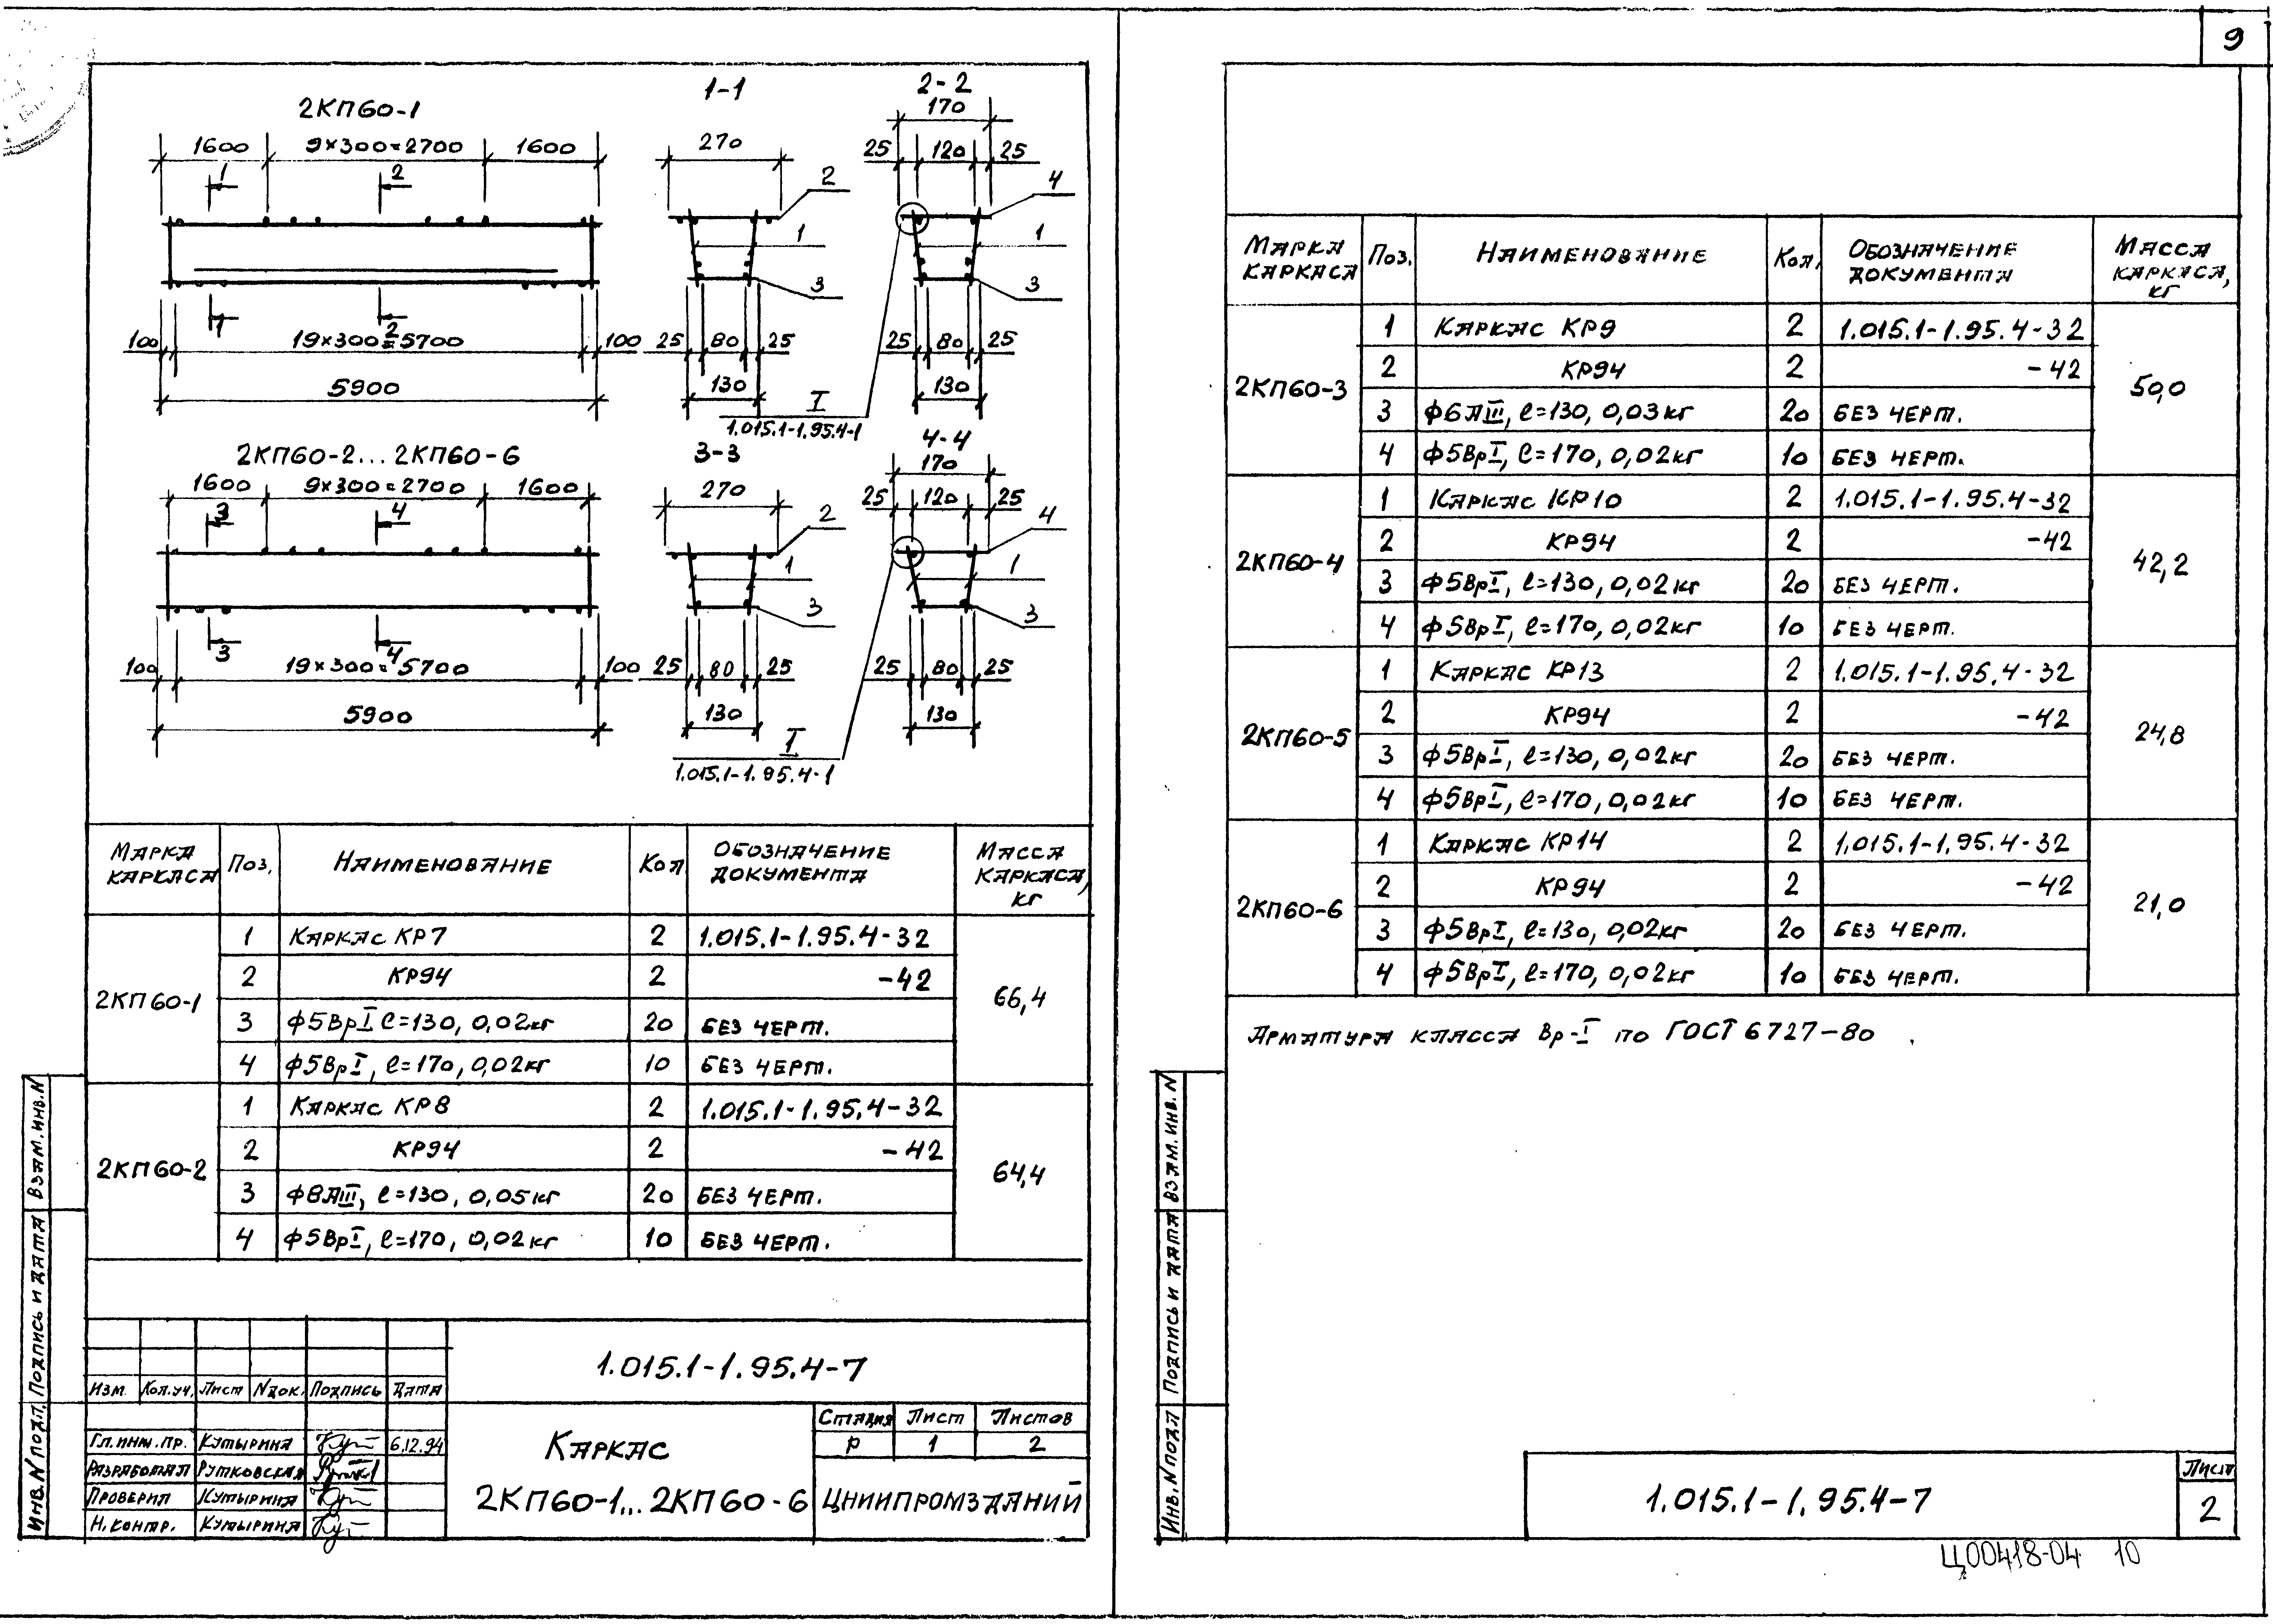 9
2КП60-1
1-1
2-2
1600 9×300=2700 1600
270
170
25 120 25
1 2
2
4
1
1
3
3
1 2
100 19×300=5700 100
25 80 25
25 80 25
5900
130
130
I
1.015.1-1.95.4-1
2КП60-2...2КП60-6
3-3
4-4
1600 9×300=2700 1600
270
170
25 120 25
3 4
2
4
1
1
3
3
3 4
100 19×300=5700 100
25 80 25
25 80 25
5900
130
130
I
1.015.1-1.95.4-1
Марка каркаса Поз. Наименование Кол Обозначение документа Масса каркаса, кг
2КП60-1 66,4
1 Каркас КР7 2 1.015.1-1.95.4-32
2 КР94 2 -42
3 ф5ВрI ℓ=130, 0,02кг 20 без черт.
4 ф5ВрI, ℓ=170, 0,02кг 10 без черт.
2КП60-2 64,4
1 Каркас КР8 2 1.015.1-1.95.4-32
2 КР94 2 -42
3 ф8АIII, ℓ=130, 0,05кг 20 без черт.
4 ф5ВрI, ℓ=170, 0,02кг 10 без черт.
1.015.1-1.95.4-7
Изм. Кол.уч. Лист Nдок. Подпись Дата
Гл.инж.пр. Кутырина 6.12.94
Разработал Рутковская
Проверил Кутырина
Н.контр. Кутырина
Каркас
2КП60-1...2КП60-6
Стадия Лист Листов
Р 1 2
ЦНИИПРОМЗДАНИЙ
Инв.N подл. Подпись и дата Взам.инв.N
Марка каркаса Поз. Наименование Кол. Обозначение документа Масса каркаса, кг
2КП60-3 50,0
1 Каркас КР9 2 1.015.1-1.95.4-32
2 КР94 2 -42
3 ф6АIII, ℓ=130, 0,03кг 20 без черт.
4 ф5ВрI, ℓ=170, 0,02кг 10 без черт.
2КП60-4 42,2
1 Каркас КР10 2 1.015.1-1.95.4-32
2 КР94 2 -42
3 ф5ВрI, ℓ=130, 0,02кг 20 без черт.
4 ф5ВрI, ℓ=170, 0,02кг 10 без черт.
2КП60-5 24,8
1 Каркас КР13 2 1.015.1-1.95.4-32
2 КР94 2 -42
3 ф5ВрI, ℓ=130, 0,02кг 20 без черт.
4 ф5ВрI, ℓ=170, 0,02кг 10 без черт.
2КП60-6 21,0
1 Каркас КР14 2 1.015.1-1.95.4-32
2 КР94 2 -42
3 ф5ВрI, ℓ=130, 0,02кг 20 без черт.
4 ф5ВрI, ℓ=170, 0,02кг 10 без черт.
Арматура класса Вр-I по ГОСТ 6727-80.
Инв.N подл Подпись и дата Взам.инв.N
1.015.1-1.95.4-7
Лист
2
Ц00418-04 10